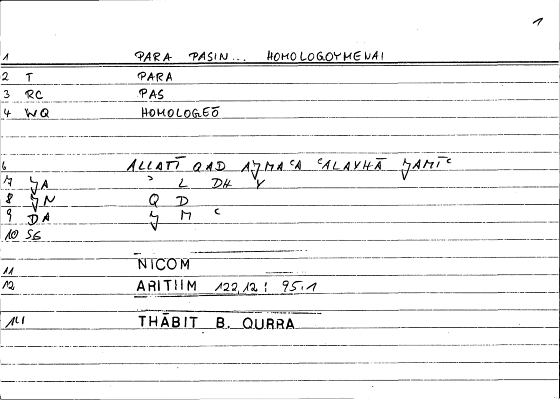 1
1 PARA PASIN... HOMOLOGOYMENAI
2 T PARA
3 RC PAS
4 WQ HOMOLOGEŌ
6 ALLATĪ QAD AǮMAᶜA ᶜALAYHĀ ǮAMĪᶜ
7 ǮA ʾ L DH Y
8 ǮN Q D
9 DA Ǯ M ᶜ
10 SG
11 NICOM
12 ARITIIM 122,12 : 95.1
14 THĀBIT B. QURRA